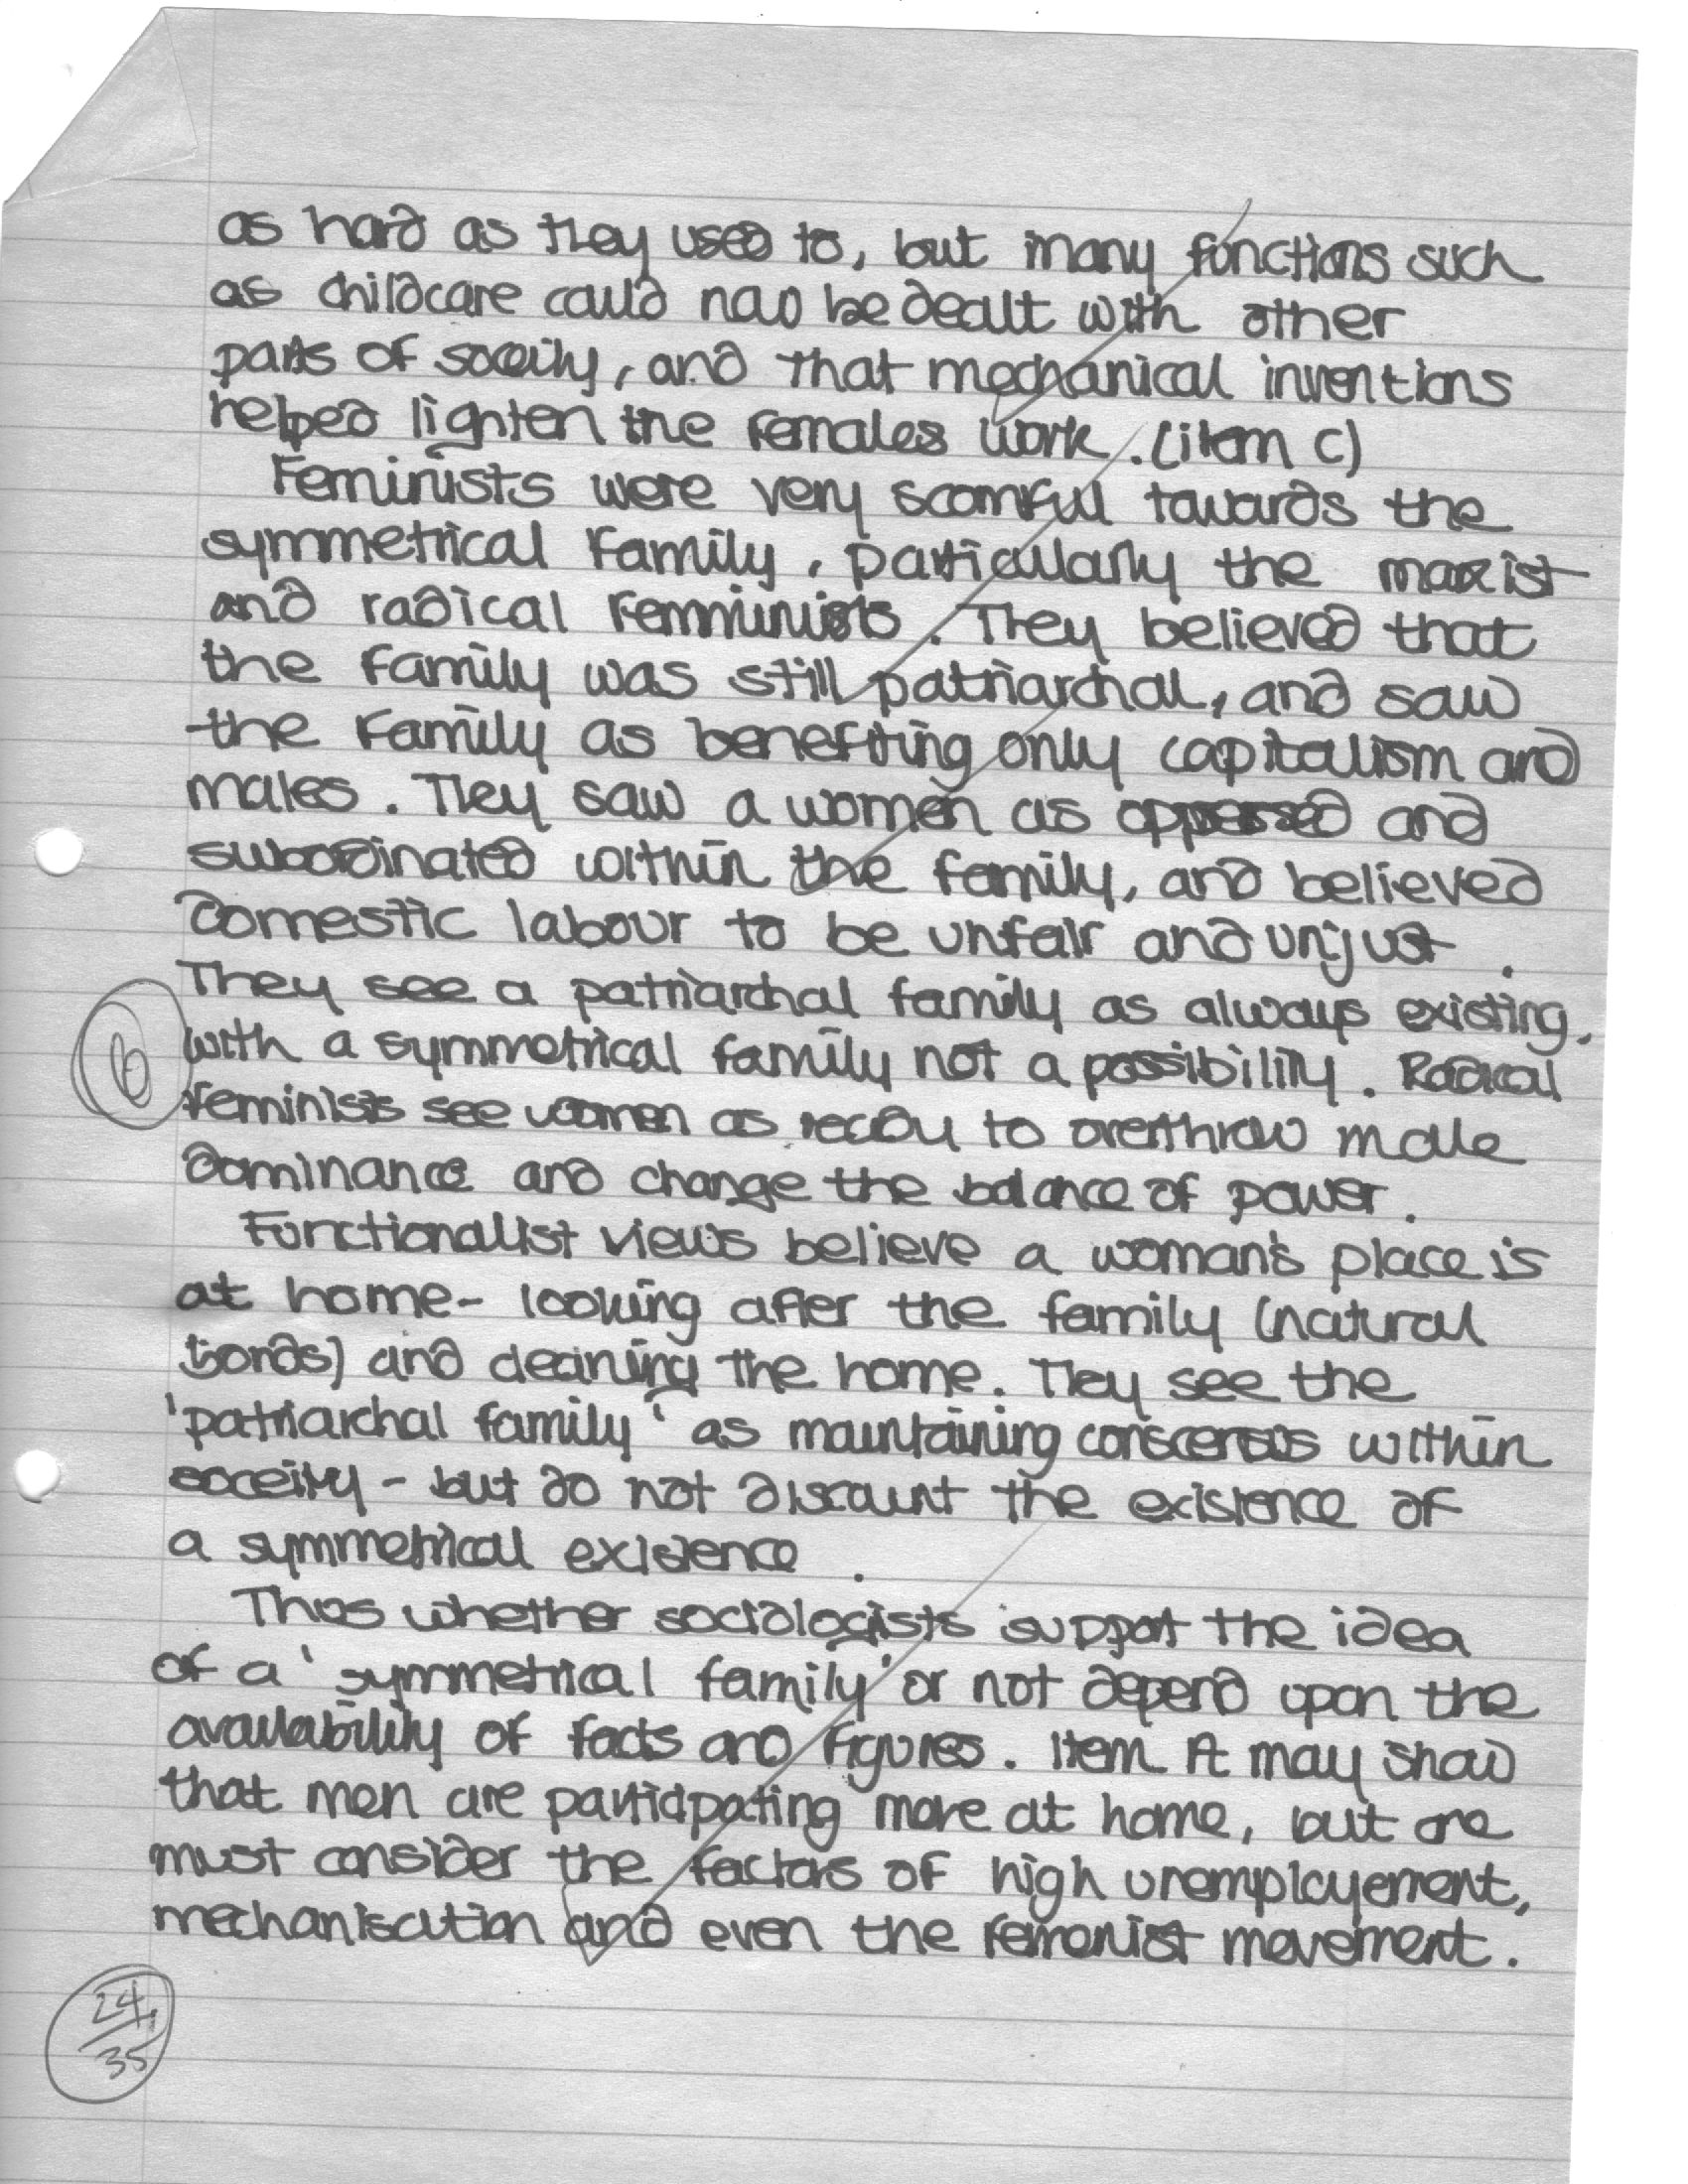 as hard as they used to, but many functions such
as childcare could now be dealt with other
parts of soceity, and that mechanical inventions
helped lighten the females work. (item C)
Feminists were very scornful towards the
symmetrical family, particularly the marxist
and radical feminists. They believed that
the family was still patriarchal, and saw
the family as benefiting only capitalism and
males. They saw a women as oppressed and
subordinated within the family, and believed
domestic labour to be unfair and unjust.
They see a patriarchal family as always existing,
with a symmetrical family not a possibility. Radical
6
feminists see women as ready to overthrow male
dominance and change the balance of power.
Functionalist views believe a woman's place is
at home - looking after the family (natural
bonds) and cleaning the home. They see the
'patriarchal family' as maintaining conscensus within
soceity - but do not discount the existence of
a symmetrical existence.
Thus whether sociologists support the idea
of a 'symmetrical family' or not depend upon the
availability of facts and figures. Item A may show
that men are participating more at home, but one
must consider the factors of high unemployement,
mechanisation and even the femenist movement.
24
35